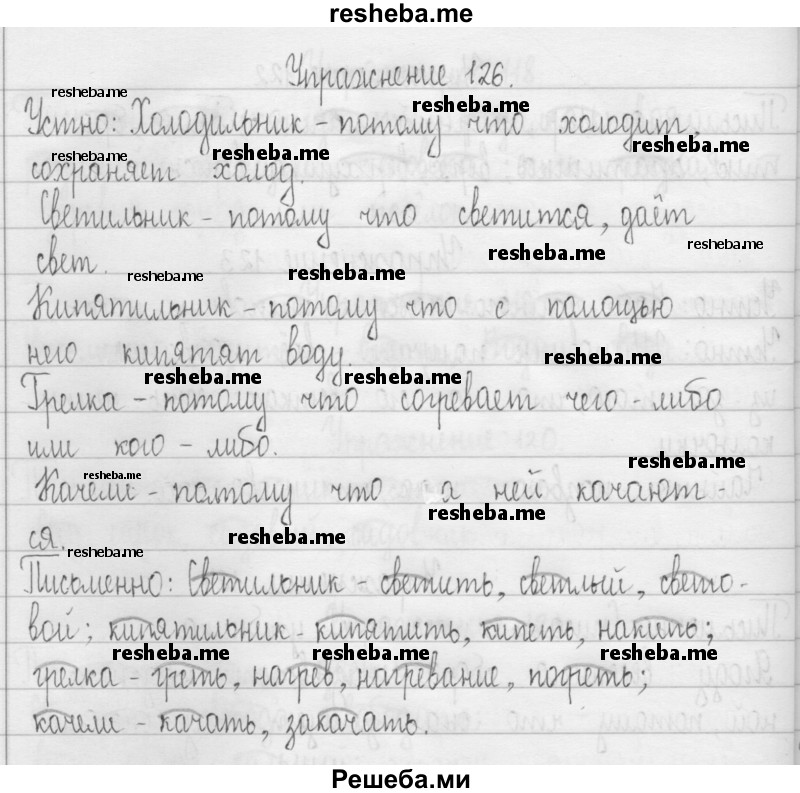 resheba.me
Упражнение 126.
resheba.me
resheba.me
Устно: Холодильник - потому что холодит,
resheba.me
resheba.me
resheba.me
сохраняет холод.
Светильник - потому что светится, даёт
resheba.me
resheba.me
свет.
resheba.me
resheba.me
Кипятильник - потому что с помощью
него кипятят воду.
resheba.me
resheba.me
resheba.me
Грелка - потому что согревает чего-либо
или кого-либо.
resheba.me
resheba.me
Качели - потому что на ней качают-
resheba.me
ся.
resheba.me
resheba.me
Письменно: Светильник - светить, светлый, свето-
вой; кипятильник - кипятить, кипеть, накипь;
resheba.me
resheba.me
resheba.me
грелка - греть, нагрев, нагревание, погреть;
качели - качать, закачать.
Решеба.ми